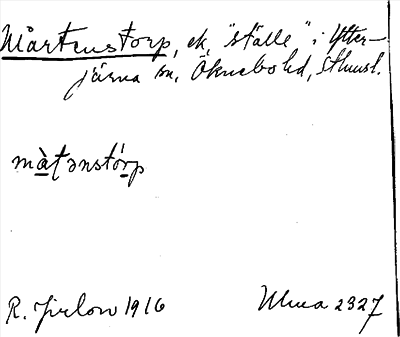 Mårtenstorp, ek, "ställe" i Ytter-
järna sn, Öknebo hd, Sthmsl.
màtənstórp
R. Jirlow 1916
Ulma 2327